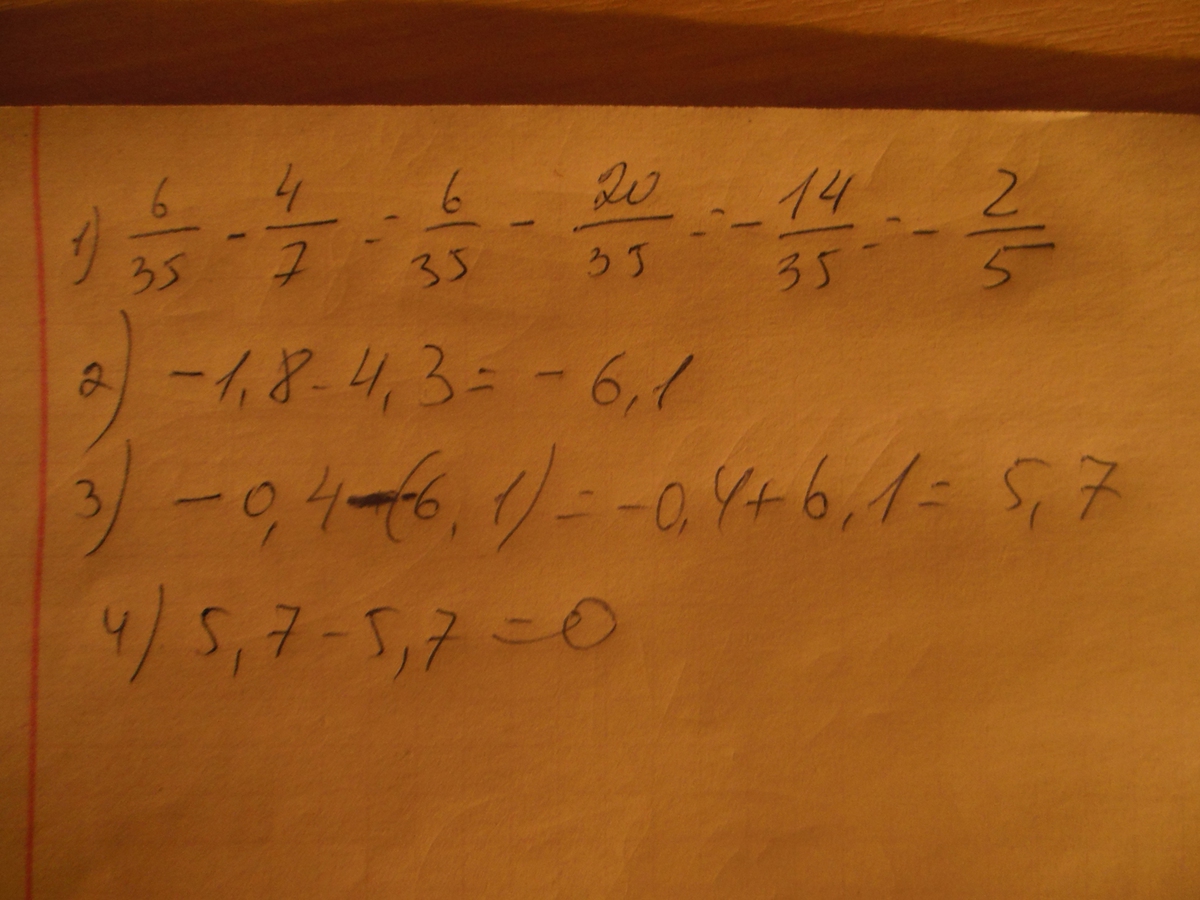 1) 6/35 - 4/7 = 6/35 - 20/35 = - 14/35 = - 2/5
2) -1,8 - 4,3 = - 6,1
3) -0,4 -(-6,1) = -0,4 + 6,1 = 5,7
4) 5,7 - 5,7 = 0